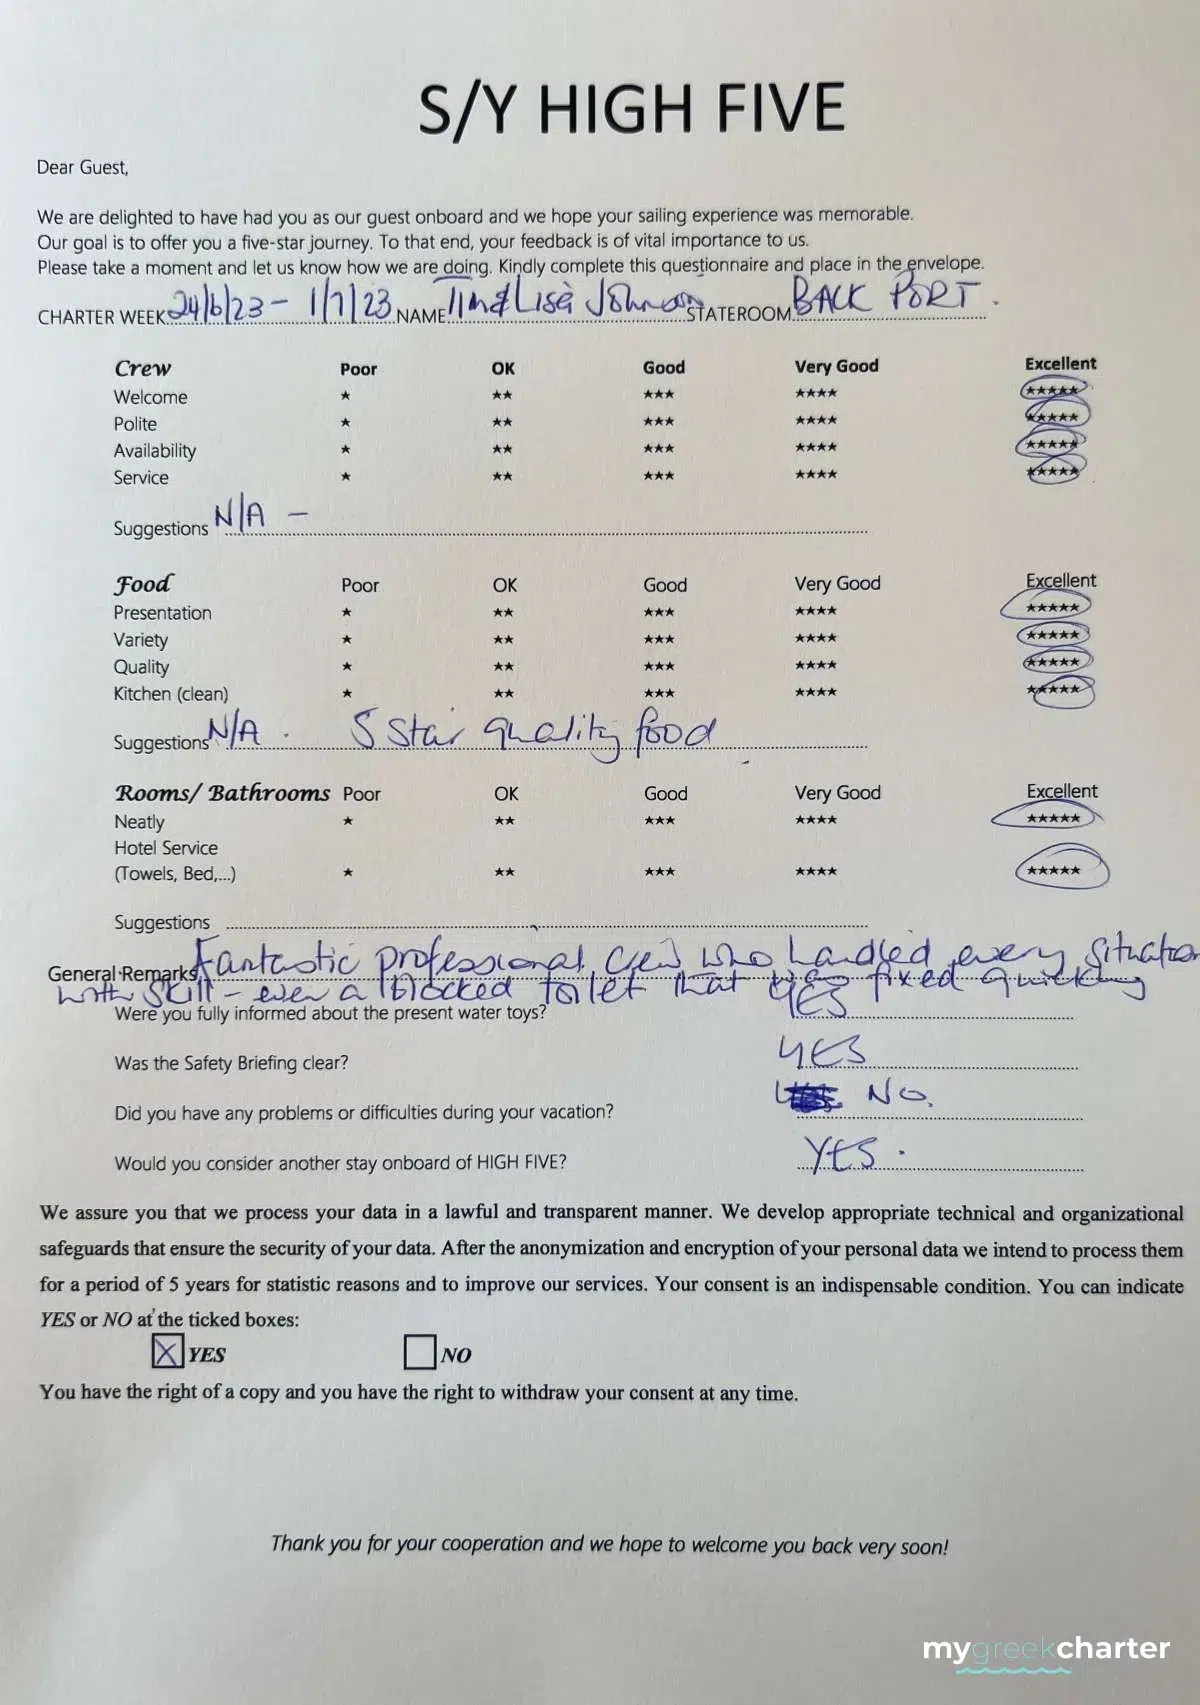 S/Y HIGH FIVE
Dear Guest,
We are delighted to have had you as our guest onboard and we hope your sailing experience was memorable.
Our goal is to offer you a five-star journey. To that end, your feedback is of vital importance to us.
Please take a moment and let us know how we are doing. Kindly complete this questionnaire and place in the envelope.
CHARTER WEEK 24/6/23 - 1/7/23 NAME Tim & Lisa Johnson STATEROOM BACK PORT.
Crew Poor OK Good Very Good Excellent
Welcome ★ ★★ ★★★ ★★★★ ★★★★★
Polite ★ ★★ ★★★ ★★★★ ★★★★★
Availability ★ ★★ ★★★ ★★★★ ★★★★★
Service ★ ★★ ★★★ ★★★★ ★★★★★
Suggestions N/A -
Food Poor OK Good Very Good Excellent
Presentation ★ ★★ ★★★ ★★★★ ★★★★★
Variety ★ ★★ ★★★ ★★★★ ★★★★★
Quality ★ ★★ ★★★ ★★★★ ★★★★★
Kitchen (clean) ★ ★★ ★★★ ★★★★ ★★★★★
Suggestions N/A. 5 Star quality food
Rooms/ Bathrooms Poor OK Good Very Good Excellent
Neatly ★ ★★ ★★★ ★★★★ ★★★★★
Hotel Service
(Towels, Bed,...) ★ ★★ ★★★ ★★★★ ★★★★★
Suggestions
General Remarks Fantastic professional crew who handled every situation
with skill - even a blocked toilet that was fixed quickly
Were you fully informed about the present water toys? YES
Was the Safety Briefing clear? YES
Did you have any problems or difficulties during your vacation? NO.
Would you consider another stay onboard of HIGH FIVE? YES.
We assure you that we process your data in a lawful and transparent manner. We develop appropriate technical and organizational
safeguards that ensure the security of your data. After the anonymization and encryption of your personal data we intend to process them
for a period of 5 years for statistic reasons and to improve our services. Your consent is an indispensable condition. You can indicate
YES or NO at the ticked boxes:
☒ YES ☐ NO
You have the right of a copy and you have the right to withdraw your consent at any time.
Thank you for your cooperation and we hope to welcome you back very soon!
mygreekcharter